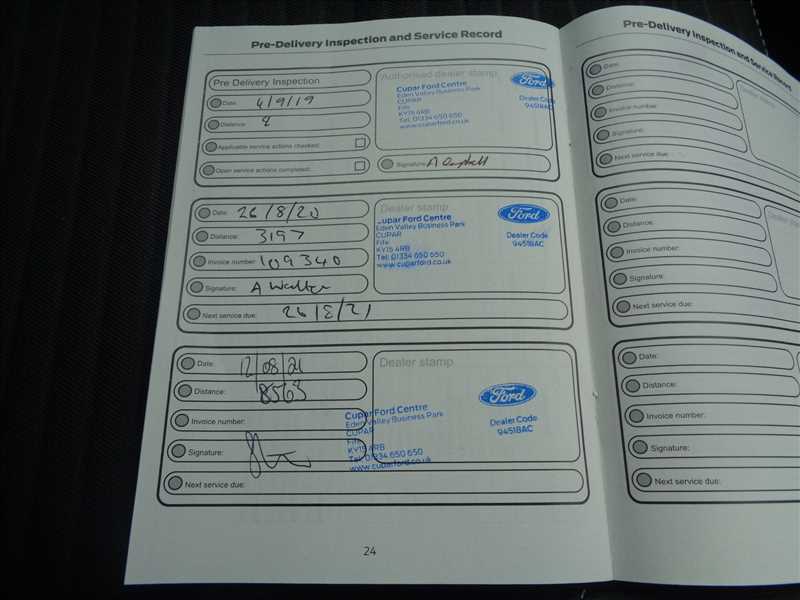 Pre-Delivery Inspection and Service Record
Pre Delivery Inspection
Date: 4/9/19
Distance: 8
Applicable service actions checked:
Open service actions completed:
Authorised dealer stamp
Cupar Ford Centre
Eden Valley Business Park
CUPAR
Fife
KY15 4RB
Tel: 01334 650 650
www.cuparford.co.uk
Ford
Dealer Code
9451BAC
Signature:
Date: 26/8/20
Distance: 3197
Invoice number: 109340
Signature: A Walker
Next service due: 26/8/21
Dealer stamp
Cupar Ford Centre
Eden Valley Business Park
CUPAR
Fife
KY15 4RB
Tel: 01334 650 650
www.cuparford.co.uk
Ford
Dealer Code
9451BAC
Date: 12/08/21
Distance: 8563
Invoice number:
Signature:
Next service due:
Dealer stamp
Cupar Ford Centre
Eden Valley Business Park
CUPAR
Fife
KY15 4RB
Tel: 01334 650 650
www.cuparford.co.uk
Ford
Dealer Code
9451BAC
24
Pre-Delivery Inspection and Service Record
Date:
Distance:
Invoice number:
Signature:
Next service due:
Dealer stamp
Date:
Distance:
Invoice number:
Signature:
Next service due:
Dealer
Date:
Distance:
Invoice number:
Signature:
Next service due: